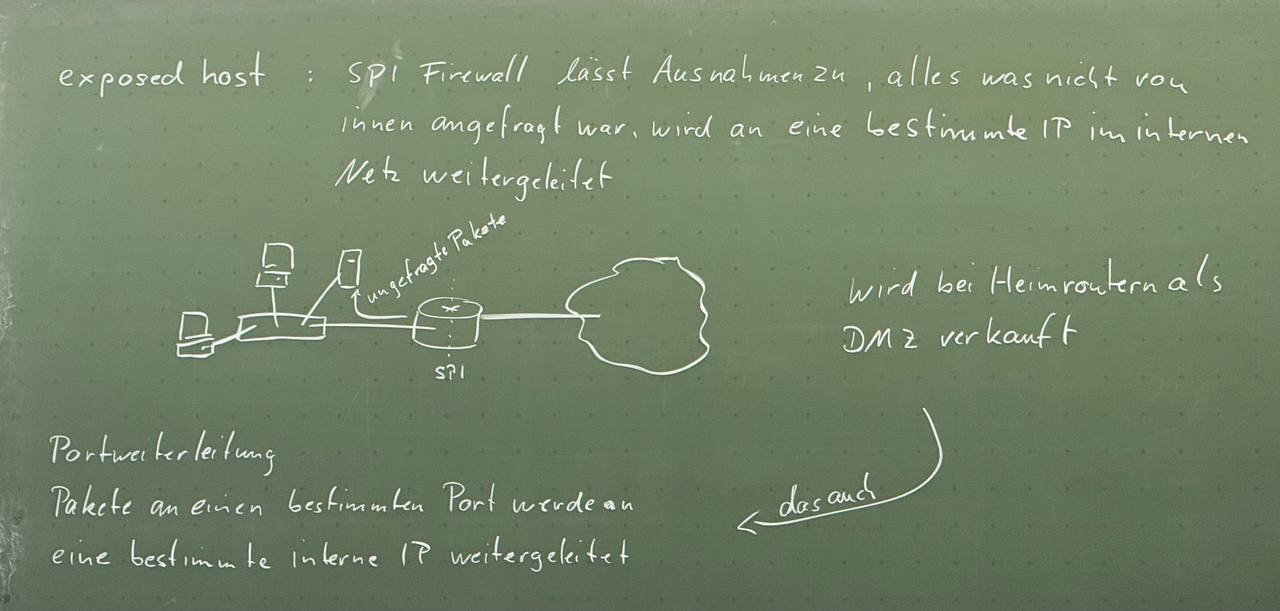 exposed host : SPI Firewall lässt Ausnahmen zu, alles was nicht von
innen angefragt war, wird an eine bestimmte IP im internen
Netz weitergeleitet
ungefragte Pakete
SPI
wird bei Heimroutern als
DMZ verkauft
das auch
Portweiterleitung
Pakete an einen bestimmten Port werde an
eine bestimmte interne IP weitergeleitet